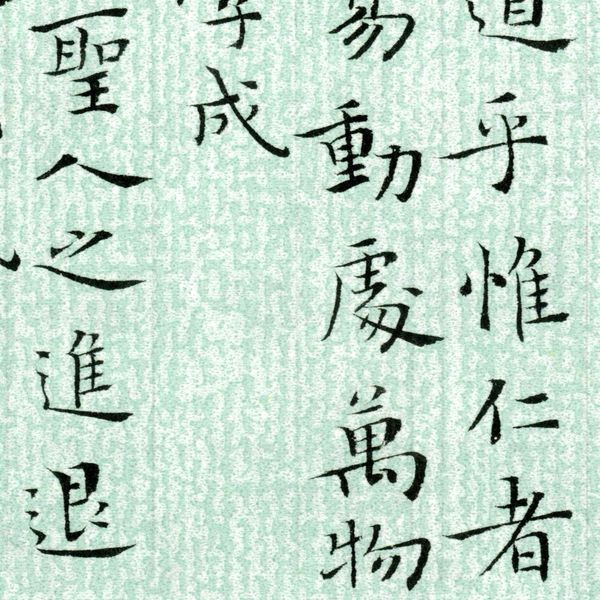 道乎惟仁者
易動處萬物
成
聖人之進退